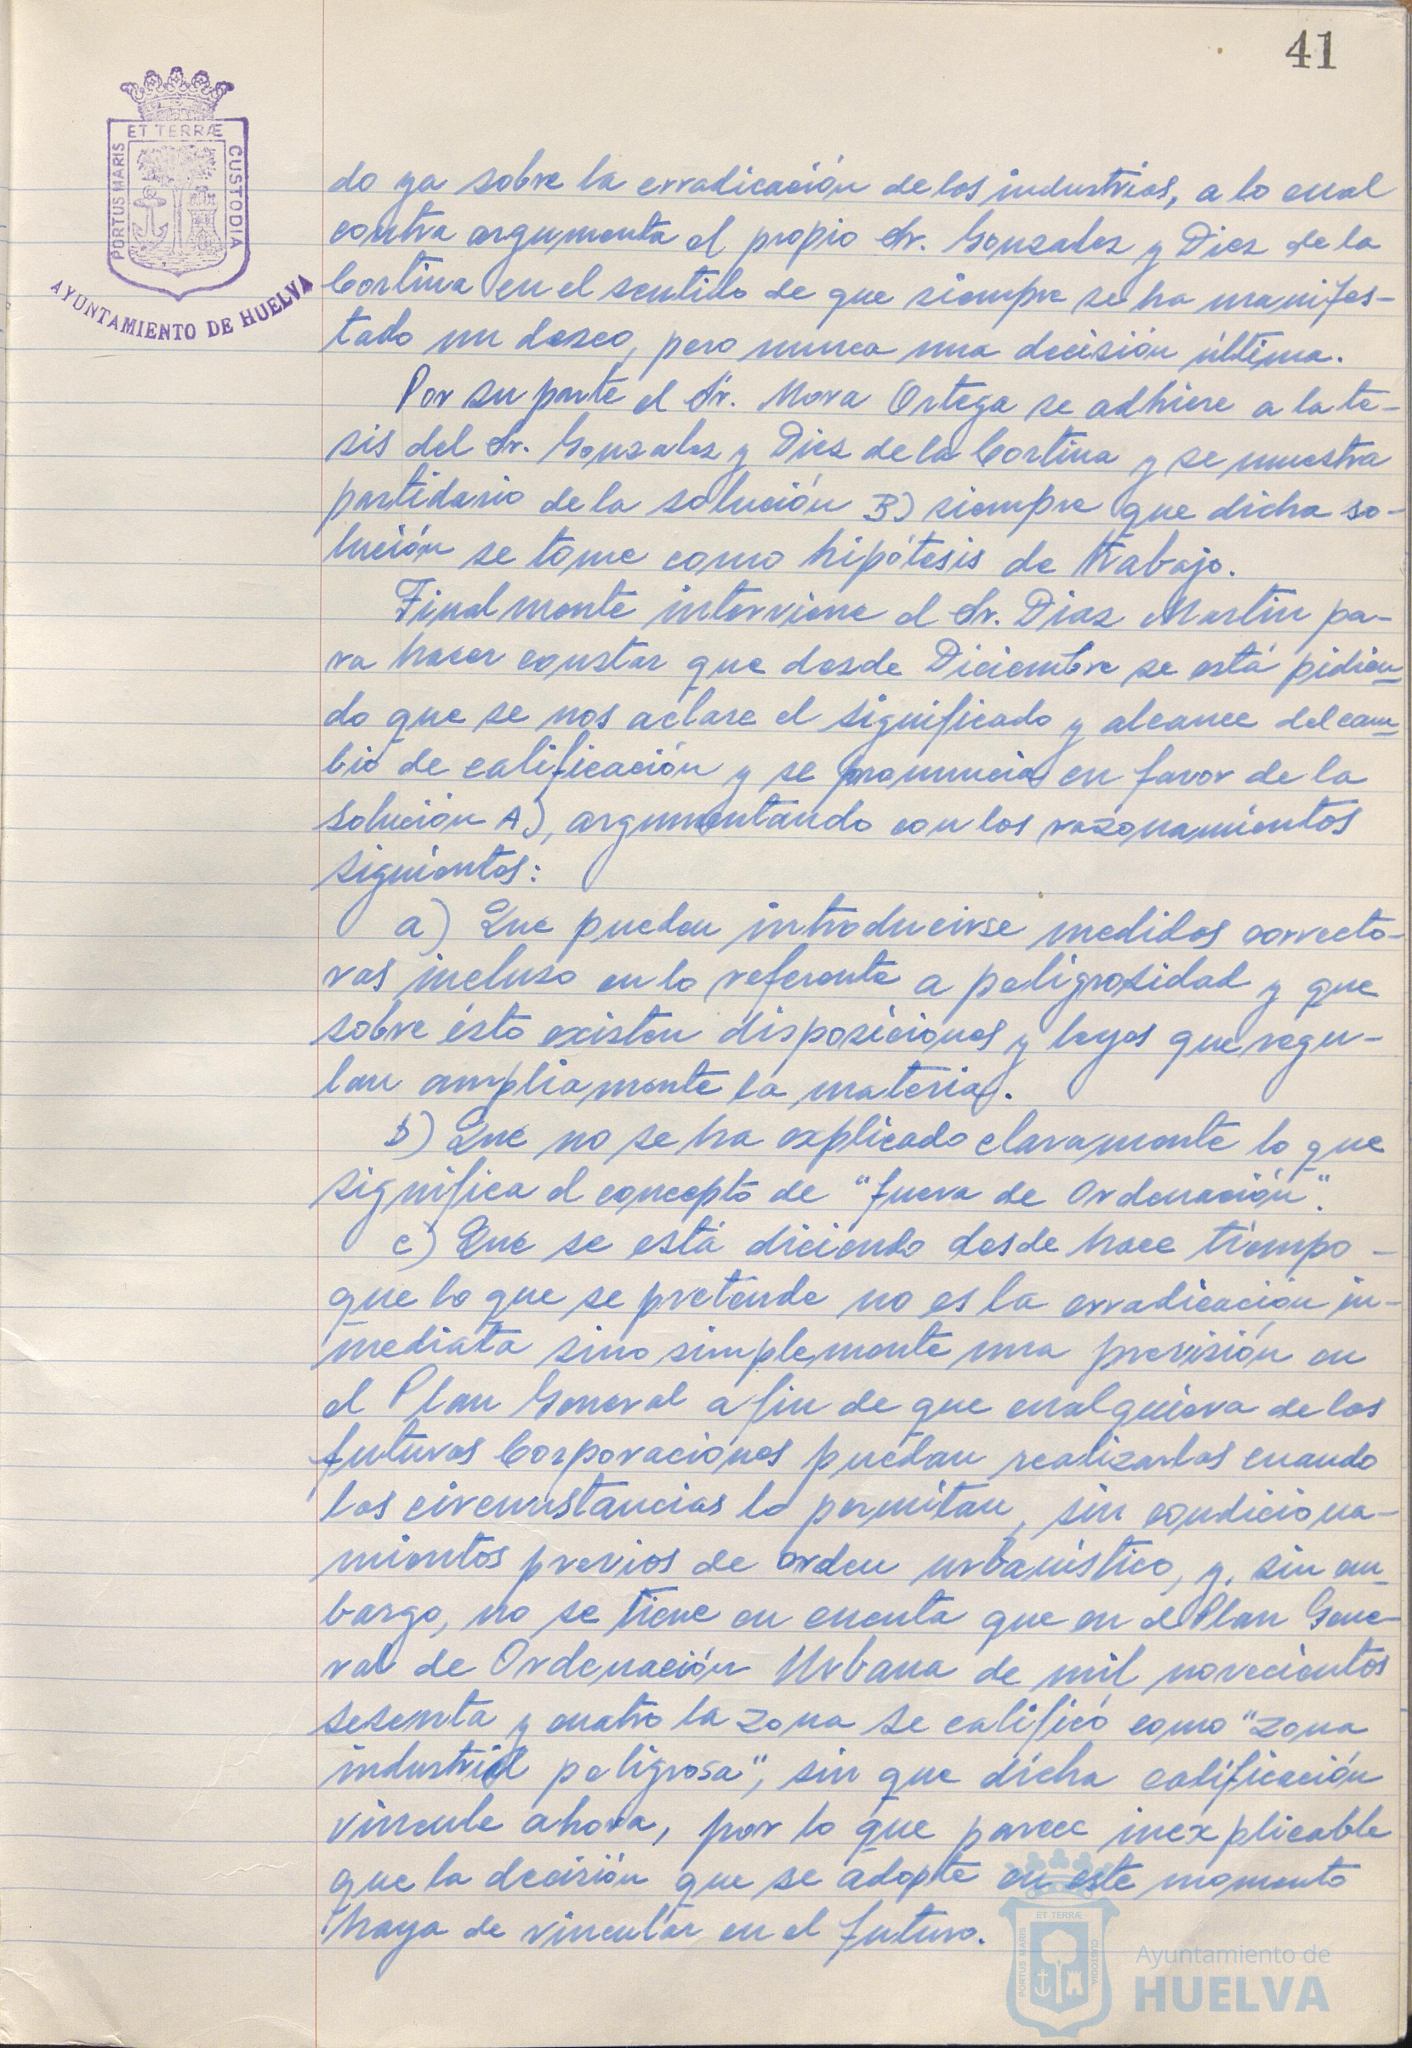 41
ET TERRÆ
PORTUS MARIS
CUSTODIA
AYUNTAMIENTO DE HUELVA
do ya sobre la erradicación de las industrias, a lo cual
contra argumenta el propio Sr. Gonzalez y Diez de la
Cortina en el sentido de que siempre se ha manifes-
tado un deseo, pero nunca una decisión última.
Por su parte el Sr. Mora Ortega se adhiere a la te-
sis del Sr. Gonzalez y Diez de la Cortina y se muestra
partidario de la solución B) siempre que dicha so-
lución se tome como hipótesis de trabajo.
Finalmente interviene el Sr. Diaz Martin pa-
ra hacer constar que desde Diciembre se está pidien-
do que se nos aclare el significado y alcance del cam-
bio de calificación y se pronuncia en favor de la
solución A), argumentando con los razonamientos
siguientes:
a) Que pueden introducirse medidas correcto-
ras incluso en lo referente a peligrosidad y que
sobre ésto existen disposiciones y leyes que regu-
lan ampliamente la materia.
b) Que no se ha explicado claramente lo que
significa el concepto de "fuera de Ordenación".
c) Que se está diciendo desde hace tiempo -
que lo que se pretende no es la erradicación in-
mediata sino simplemente una previsión en
el Plan General a fin de que cualquiera de las
futuras Corporaciones puedan realizarlas cuando
las circunstancias lo permitan, sin condiciona-
mientos previos de orden urbanístico, y, sin em-
bargo, no se tiene en cuenta que en el Plan Gene-
ral de Ordenación Urbana de mil novecientos
sesenta y cuatro la zona se calificó como "zona
industrial peligrosa", sin que dicha calificación
vincule ahora, por lo que parece inexplicable
que la decisión que se adopte en este momento
haya de vincular en el futuro.
ET TERRÆ
PORTUS MARIS
CUSTODIA
Ayuntamiento de
HUELVA